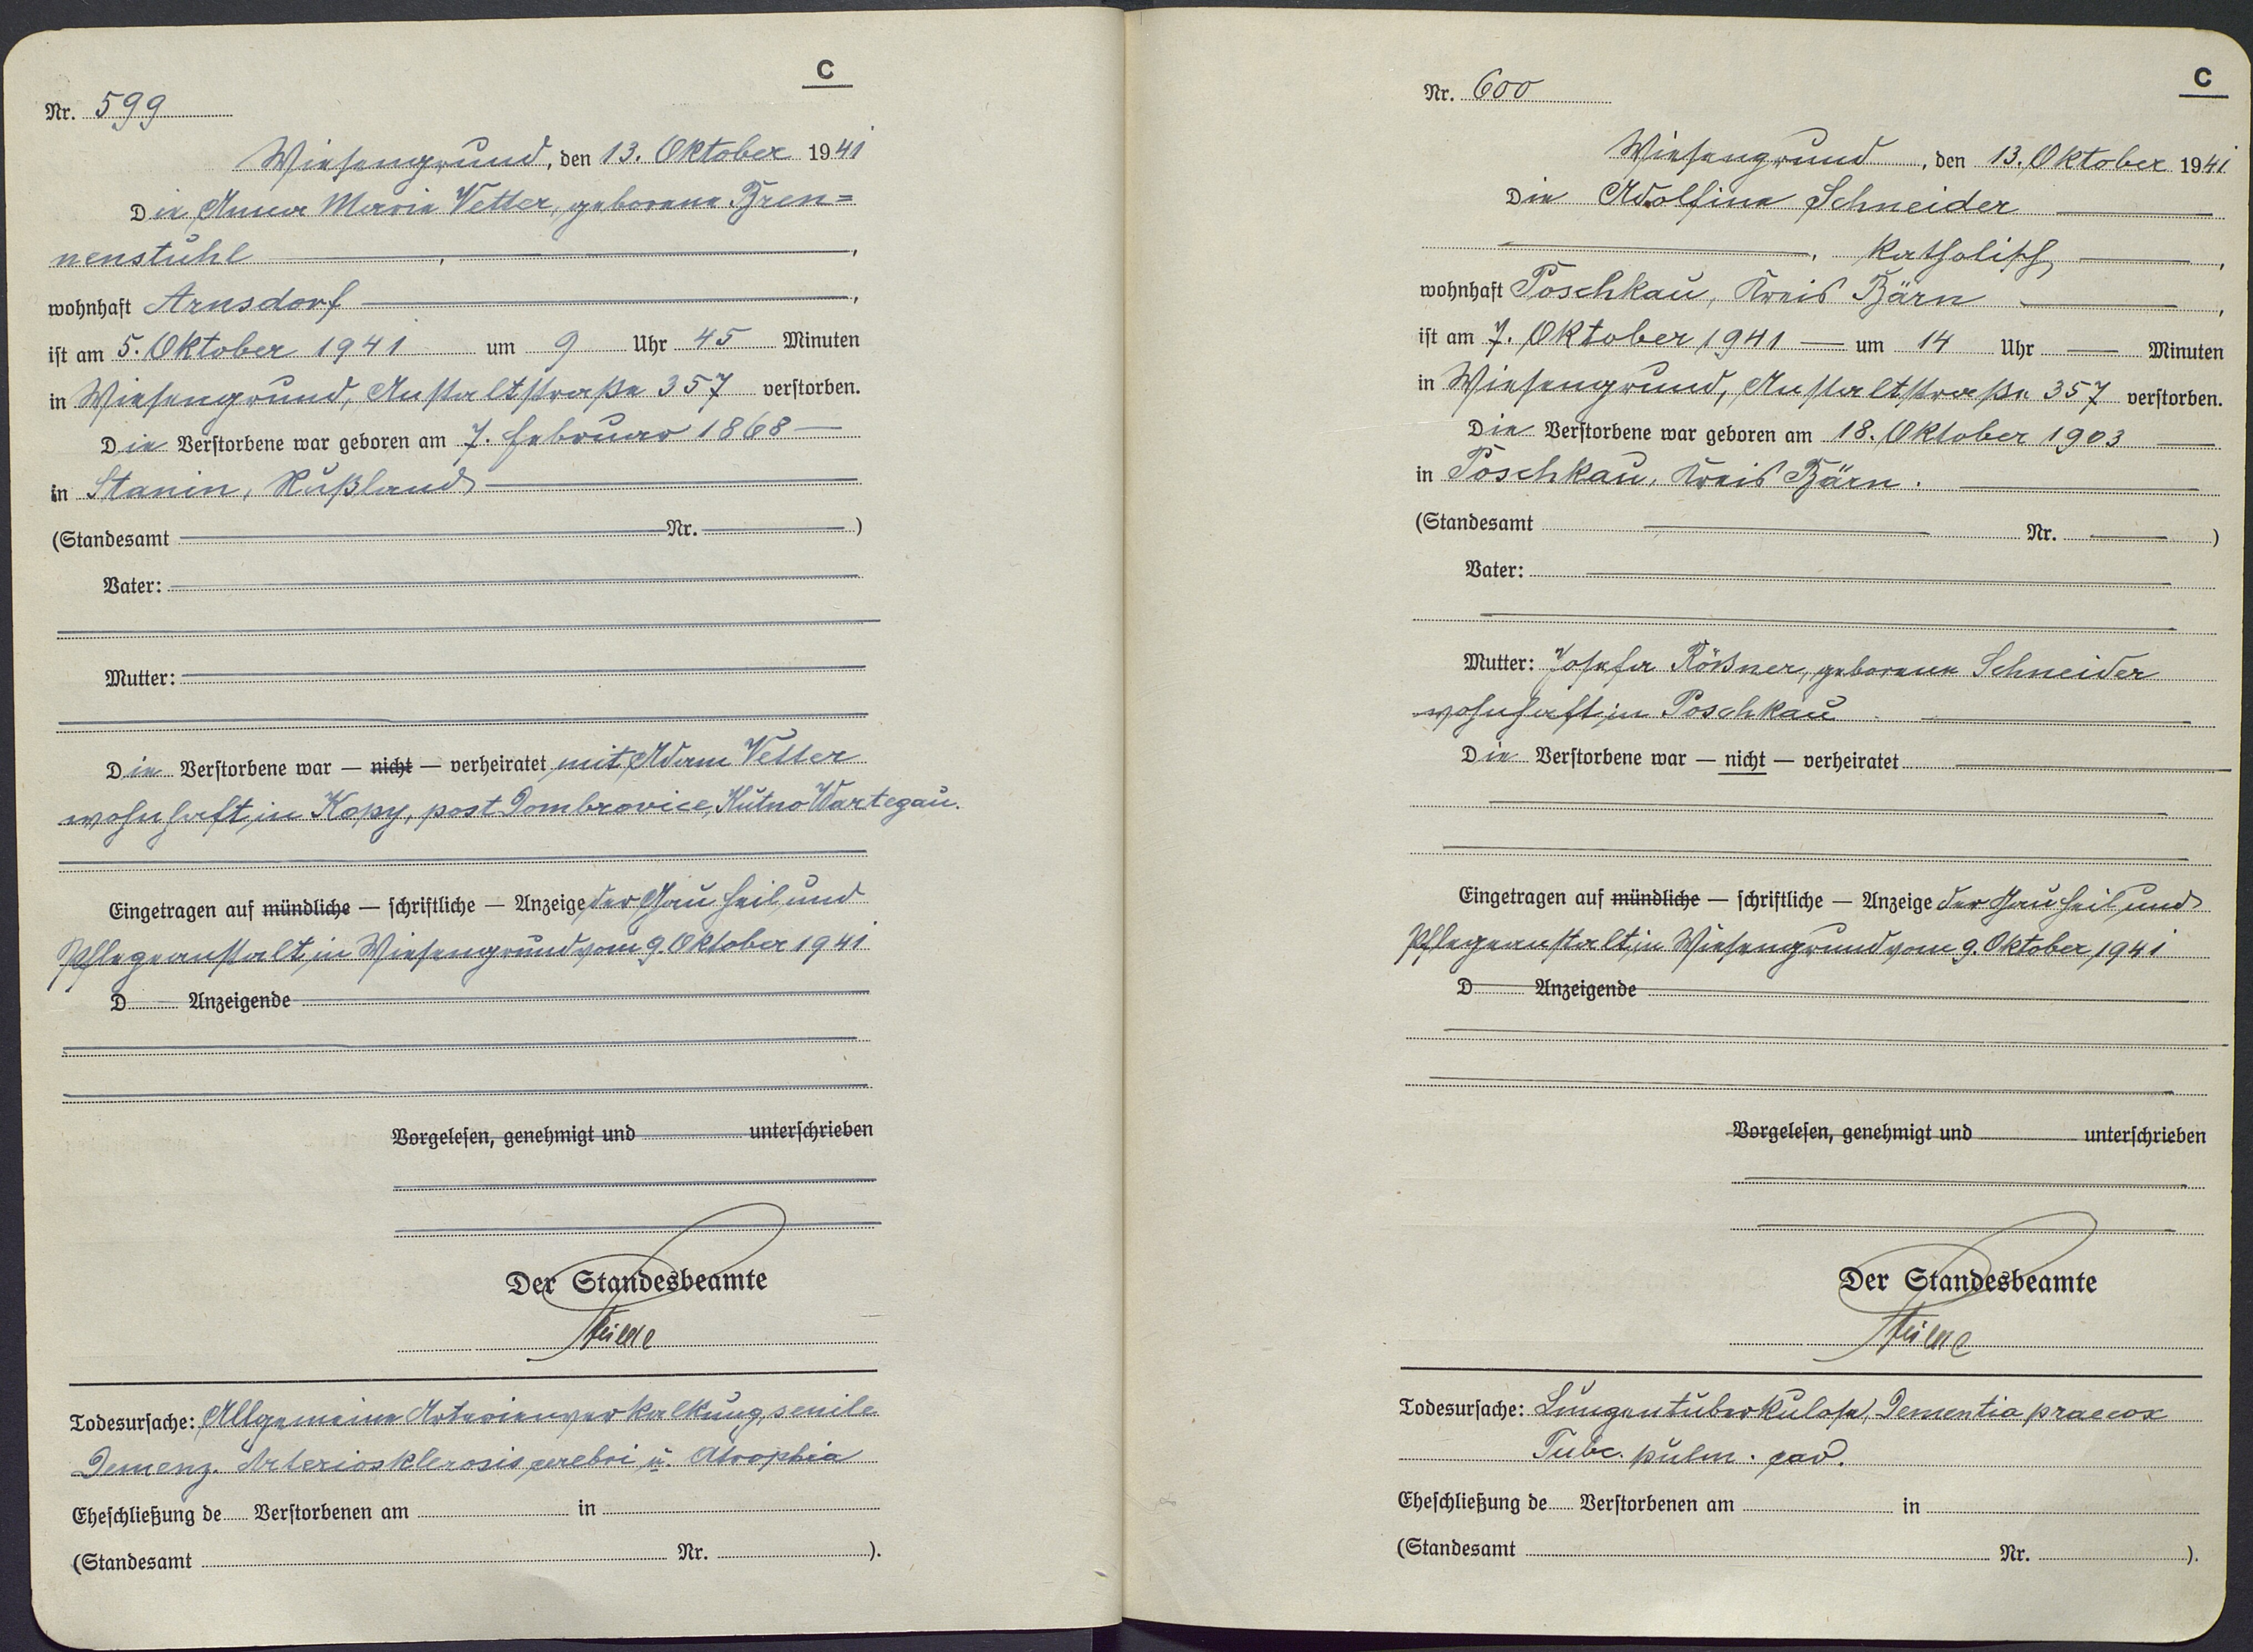 C
Nr. 599
Wiesengrund, den 13. Oktober 1941
Die Anna Maria Vetter, geborene Bren=
nenstuhl
wohnhaft Arnsdorf
ist am 5. Oktober 1941 um 9 Uhr 45 Minuten
in Wiesengrund, Anstaltstraße 357 verstorben.
Die Verstorbene war geboren am 7. Februar 1868
in Stanin, Rußland
(Standesamt Nr. )
Vater:
Mutter:
Die Verstorbene war — nicht — verheiratet mit Adam Vetter
wohnhaft in Kopy, post Dombrovice, Kutno Wartegau.
Eingetragen auf mündliche — schriftliche — Anzeige der Gau Heil und
Pflegeanstalt in Wiesengrund vom 9. Oktober 1941
D Anzeigende
Vorgelesen, genehmigt und unterschrieben
Der Standesbeamte
Todesursache: Allgemeine Arterienverkalkung, senile
Demenz. Arteriosklerosis cerebri u. Atrophia
Eheschließung de Verstorbenen am in
(Standesamt Nr. ).
C
Nr. 600
Wiesengrund, den 13. Oktober 1941
Die Adolfine Schneider
, katholisch,
wohnhaft Poschkau, Kreis Bärn
ist am 7. Oktober 1941 — um 14 Uhr — Minuten
in Wiesengrund, Anstaltstraße 357 verstorben.
Die Verstorbene war geboren am 18. Oktober 1903
in Poschkau, Kreis Bärn.
(Standesamt Nr. )
Vater:
Mutter: Josefa Rößner, geborene Schneider
wohnhaft in Poschkau
Die Verstorbene war — nicht — verheiratet
Eingetragen auf mündliche — schriftliche — Anzeige der Gau Heil und
Pflegeanstalt in Wiesengrund vom 9. Oktober 1941
D Anzeigende
Vorgelesen, genehmigt und unterschrieben
Der Standesbeamte
Todesursache: Lungentuberkulose, Dementia praecox
Tubc. pulm. cav.
Eheschließung de Verstorbenen am in
(Standesamt Nr. ).